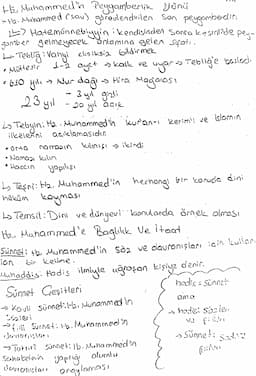 Hz. Muhammed'in Peygamberlik Yönü
→ Hz. Muhammed (sav) gönderilen son peygamberdir.
Hatemünnebiyyin: kendisinden sonra kesinlikle pey-
gamber gelmeyecek anlamına gelen
→ Tebliğ: Vahyi eksiksiz bildirmek
• 1-2 ayet → kalk ve uyar → Tebliğ'e başladı
• 610 yılı → Nur dağı → Hira Mağarası
23 yıl - 3 yıl gizli
- 20 yıl açık
→ Tebyin: Hz. Muhammed'in kuranı kerimi ve İslamın
ilkelerini açıklamasıdır.
namazın kılınışı → ikindi
• Namazı kılın
• Haccın yapılışı
→ Teşri: Hz. Muhammed'in herhangi bir konuda dini
hüküm koyması
→ Temsil: Dini ve dünyevi konularda örnek olması
Hz. Muhammed'e Bağlılık ve İtaat
Sünnet: Hz. Muhammed'in söz ve davranışları için kullanı-
lan bir kelime.
Muhaddis: Hadis ilmiyle uğraşan kişiye denir.
Sünnet Çeşitleri
→ Kavli sünnet: Hz. Muhammed'in
sözleri
→ Fiili sünnet: Hz. Muhammed'in
davranışları
→ Takriri sünnet: Hz. Muhammed'in
sahabelerin yaptığı olumlu
davranışları onaylaması
hadis: sünnet
ama
→ hadis: sözleri
ve fiili
→ Sünnet: